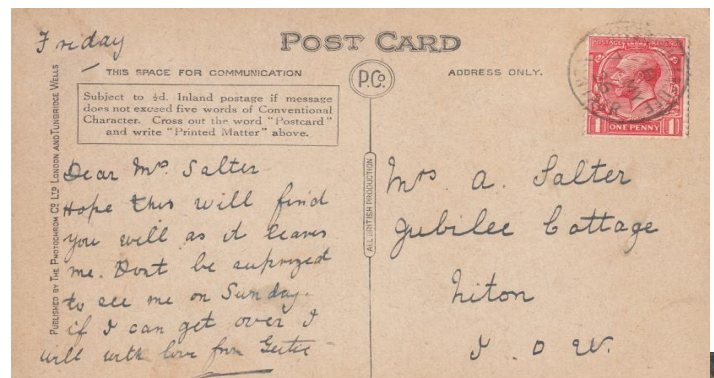 Friday
POST CARD
THIS SPACE FOR COMMUNICATION
P.Co.
ADDRESS ONLY.
Subject to ½d. Inland postage if message
does not exceed five words of Conventional
Character. Cross out the word "Postcard"
and write "Printed Matter" above.
PUBLISHED BY THE PHOTOCHROM Co LTD LONDON AND TUNBRIDGE WELLS
ALL BRITISH PRODUCTION
Dear Mrs Salter
Hope this will find
you will as it leaves
me. Dont be suprized
to see me on Sunday.
if I can get over I
will with love from Gertie
Mrs A. Salter
Jubilee Cottage
Niton
I. O W.
1 ONE PENNY 1